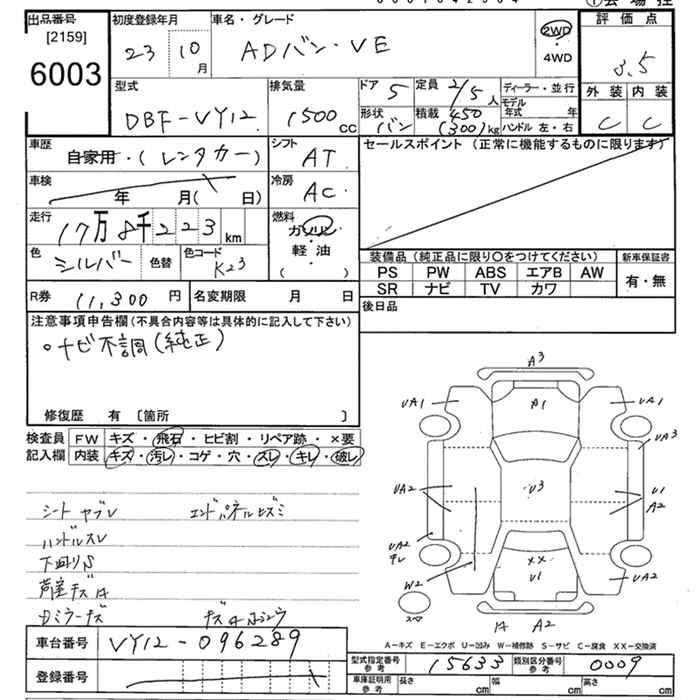 出品番号
[2159]
6003
初度登録年月
23 10月
車名・グレード
ADバン・VE
2WD
・
4WD
評価点
3.5
外装 内装
C C
型式
DBF-VY12
排気量
1500 cc
ドア 5
形状 バン
定員 2/5人
積載 450 (300)kg
ディーラー・並行
モデル年式 年
ハンドル 左・右
車歴
自家用・(レンタカー)
シフト
AT
セールスポイント (正常に機能するものに限ります)
車検
年 月( 日)
冷房
AC
走行
17万8千223km
燃料
ガソリン
軽・油
( )
色
シルバー
色替
色コード
K23
装備品 (純正品に限り○をつけてください)
新車保証書
PS PW ABS エアB AW
SR ナビ TV カワ
有・無
R券 11,300円
名変期限 月 日
後日品
注意事項申告欄(不具合内容等は具体的に記入して下さい)
○ナビ不調(純正)
修復歴 有 〔箇所 〕
検査員 FW キズ・飛石・ヒビ割・リペア跡・×要
記入欄 内装 キズ・汚レ・コゲ・穴・スレ・キレ・破レ
シートヤブレ エンドパネルヒズミ
ハンドルスレ
下回りS
A3
UA1 A1 UA1
UA3
UA2 U3 U1
A2
UA2
W2 XX
U1 UA2
スペア
A2
A-キズ E-エクボ U-凹み W-補修跡 S-サビ C-腐食 XX-交換済
車台番号 VY12-096289
登録番号
型式指定番号 参考 15633
類別区分番号 参考 0009
車庫証明用 参考 長さ cm 幅 cm 高さ cm